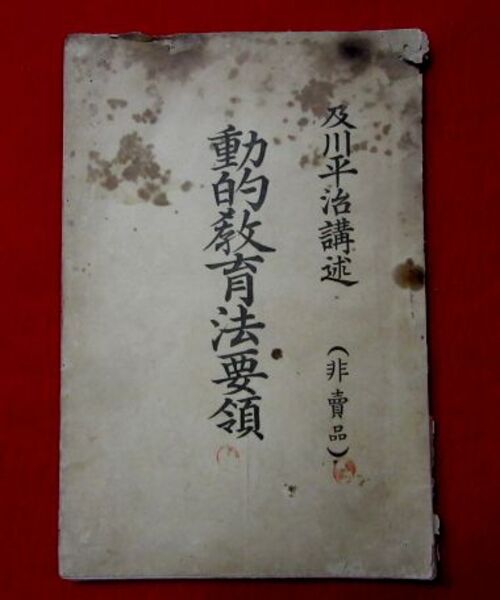 及川平治講述（非賣品）
動的教育法要領